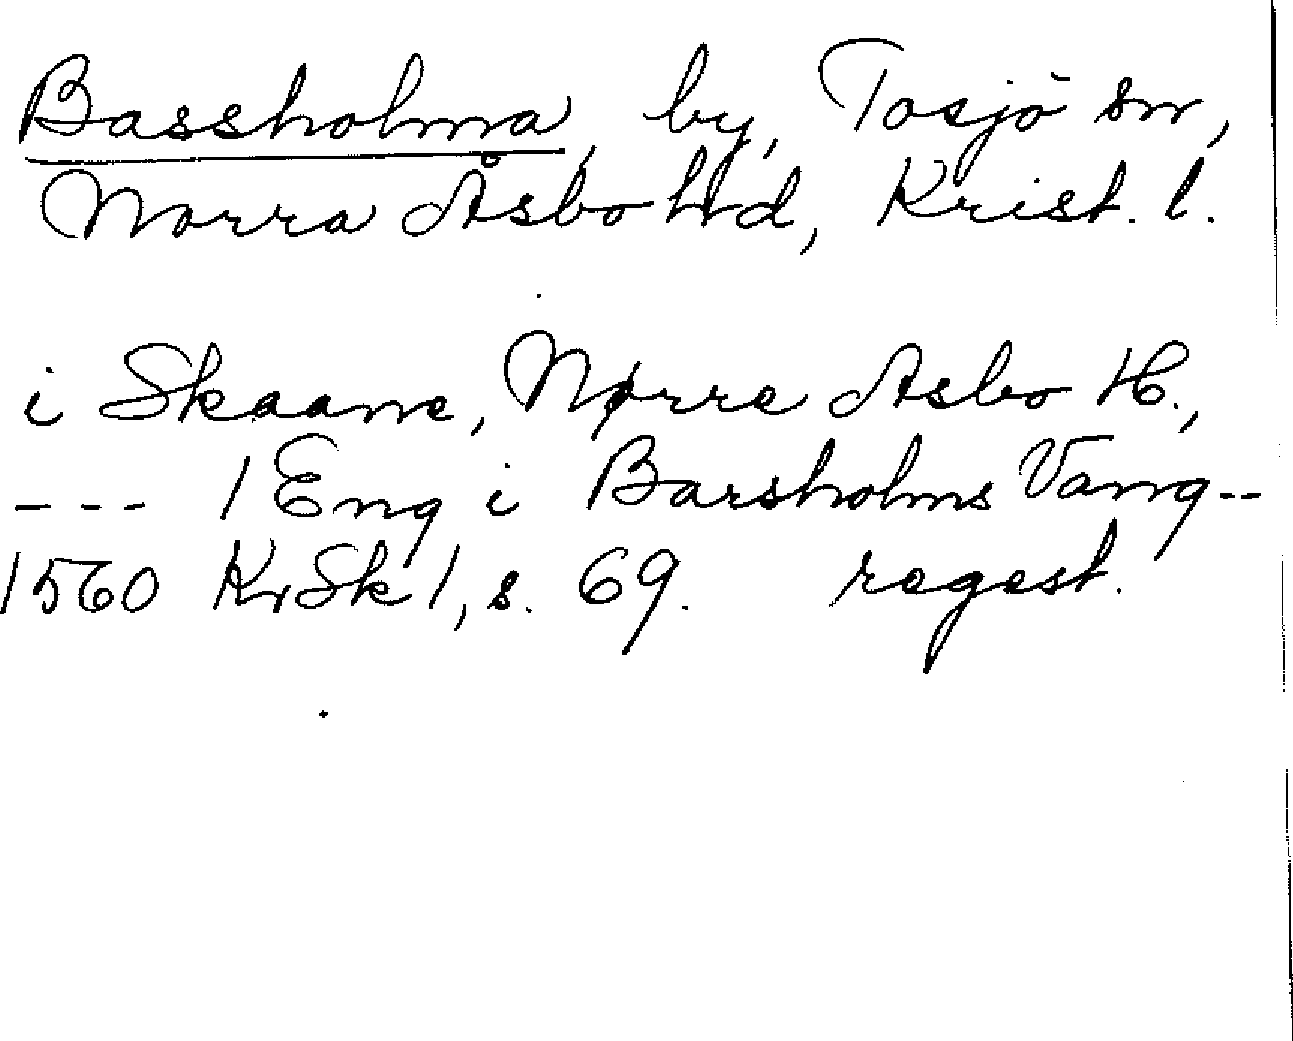 Bassholma, by, Tosjö sn,
Norra Åsbo hd, Krist. l.
i Skaane, Nørre Asbo H.,
--- 1 Eng i Barsholms Vang--
1560 KrSk 1, s. 69. regest.